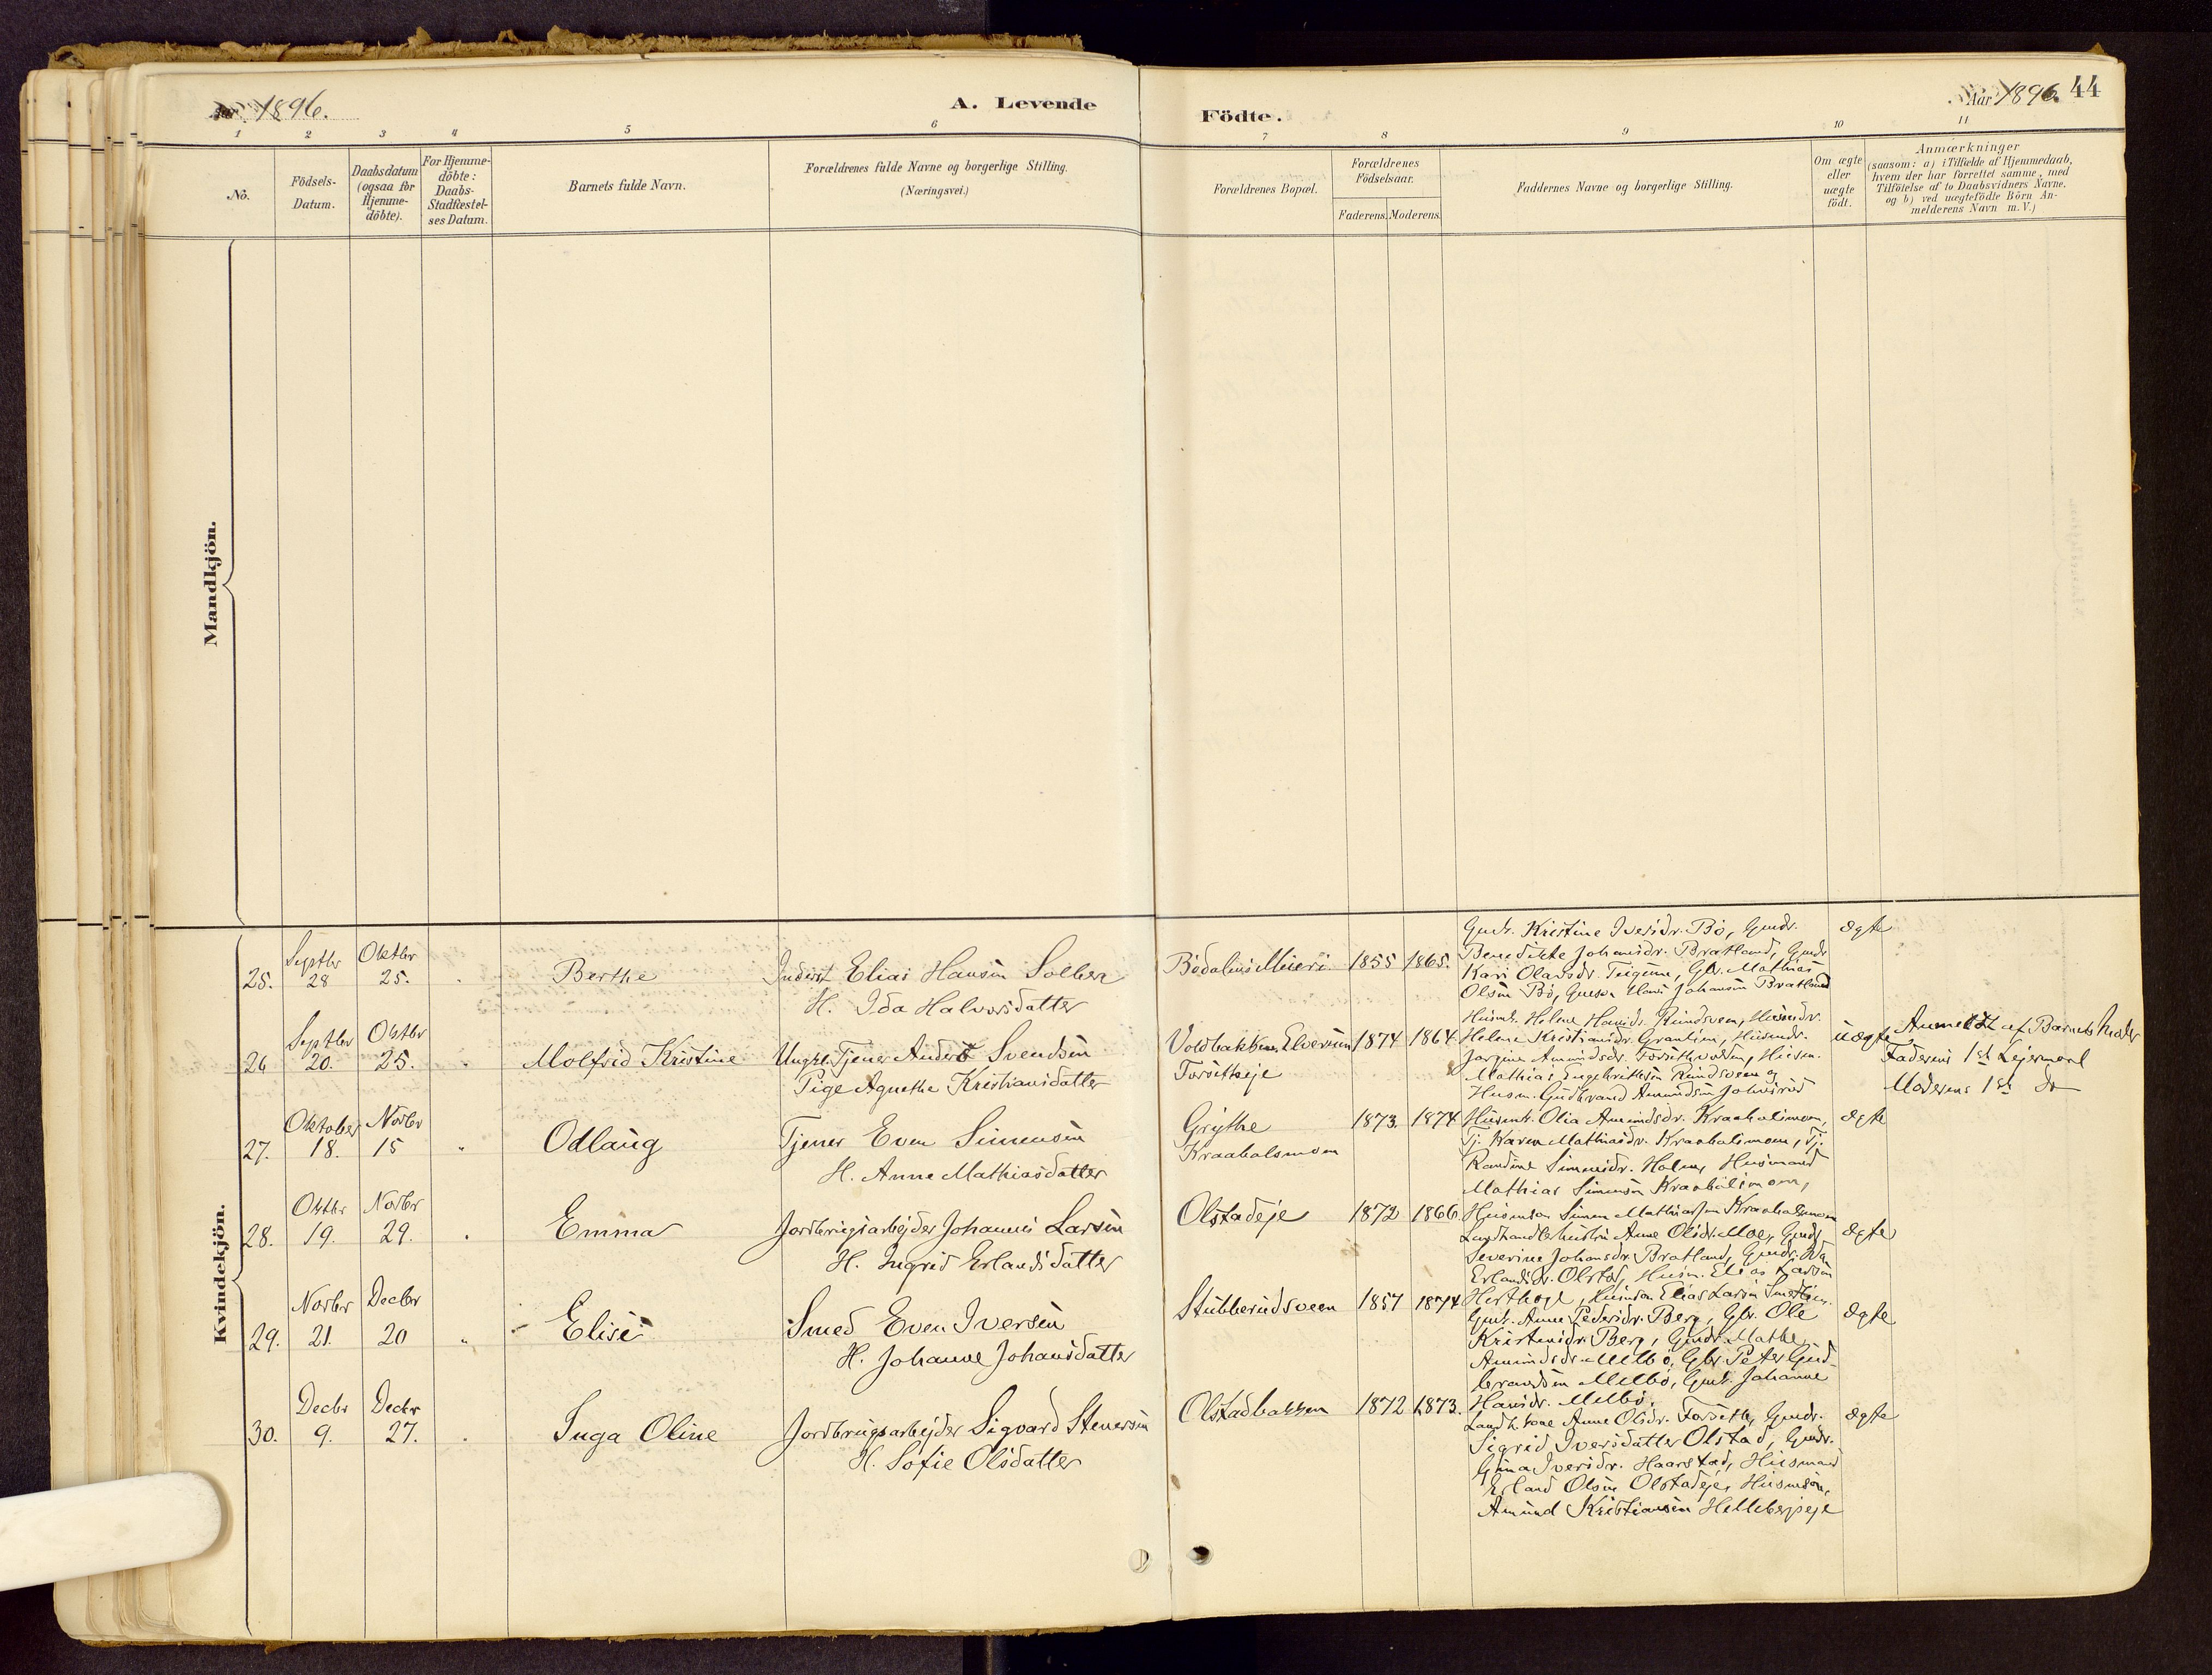 Aar 1896.
A. Levende
Födte.
Aar 1896.
44
1
2
3
4
5
6
7
8
9
10
11
No.
Födsels-
Datum.
Daabsdatum
(ogsaa for
Hjemme-
döbte).
For Hjemme-
döbte:
Daabs-
Stadfæstel-
ses Datum.
Barnets fulde Navn.
Forældrenes fulde Navne og borgerlige Stilling.
(Næringsvei.)
Forældrenes Bopæl.
Forældrenes
Födselsaar.
Faderens. Moderens.
Faddernes Navne og borgerlige Stilling.
Om ægte
eller
uægte
födt.
Anmærkninger
(saasom: a) i Tilfælde af Hjemmedaab,
hvem der har forrettet samme, med
Tilföielse af to Daabsvidners Navne.
og b) ved uægtefödte Börn An-
melderens Navn m. V.)
Mandkjön.
Kvindekjön.
25.
Septbr
28
Oktbr
25.
Berthe
Inderst Elias Hansen Solberg
H. Ida Halvorsdatter
Bödalens Meieri
1855
1865.
Gmk. Kristine Iversdr. Bö, Gmdr.
Benedikte Johansdr. Bratland, Gmdr
Kari Olavsdr. Teigene, Gbr. Mathias
Olsen Bö, Gmsön Hans Johansen Bratland
ægte
26
Septbr
20.
Oktbr
25.
Molfrid Kristine
Ungk. Tjener Anders Svendsen
Pige Agnethe Kristiansdatter
Voldbakken, Elverum
Forsetheje
1874
1864
Husmk. Helene Hansdr. Rundsveen, Husmdr.
Helene Kristiansdr. Granlien, Husmdr.
Jörgine Amundsdr. Forsethvolden, Husm.
Mathias Engebrethsen Rundsveen og
Husm. Gudbrand Amundsen Johnsrud
uægte
Anmeldt af Barnets Moder
Faderens 1st Lejermaal
Moderens 1st do
27.
Oktober
18.
Novbr
15
Odlaug
Tjener Even Simensen
H. Anne Mathiasdatter
Grÿthe
Kraabolsmoen
1873.
1874
Husmk. Olia Amundsdr. Kraabolsmoen,
Tj. Karen Mathiasdr. Kraabolsmoen, Tj.
Randine Simensdr. Holen, Husmand
Mathias Simensen Kraabölsmoen,
Husmsön Simen Mathiassen Kraabolsmoen
ægte
28.
Oktbr
19.
Novbr
29.
Emma
Jordbrugsarbejder Johannes Larsen
H. Ingrid Erlandsdatter
Olstadeje
1872
1866.
Landhandlerhustru Anne Olsdr. Moe, Gmdr
Severine Johansdr. Bratland, Gmdr. Ida
Erlandsdr. Olstad, Husm. Elias Larsen
Herthage, Husmsön Elias Larsen
ægte
29.
Novbr
21.
Decbr
20
Elise
Smed Even Iversen
H. Johanne Johansdatter
Stubberudsveen
1857
1874
Gmk. Anne Pedersdr. Berg, Gbr. Ole
Kristensen Berg, Gmdr. Mathe
Amundsdr. Melbö, Gbr. Peter Gud-
brandsen Melbö, Gmk. Johanne
Hansdr. Melbö.
ægte
30.
Decbr
9.
Decbr
27.
Inga Oline
Jordbrugsarbejder Sigvard Stenersen
H. Sofie Olsdatter
Olstadbakken
1872
1873.
Landh. kone Anne Olsdr. Forseth, Gmdr.
Sigrid Iversdatter Olstad, Gmdr.
Gina Iversdr. Haarstad, Husmand
Erland Olsen Olstadeje, Husmsön,
Amund Kristiansen Hellebergseje
ægte